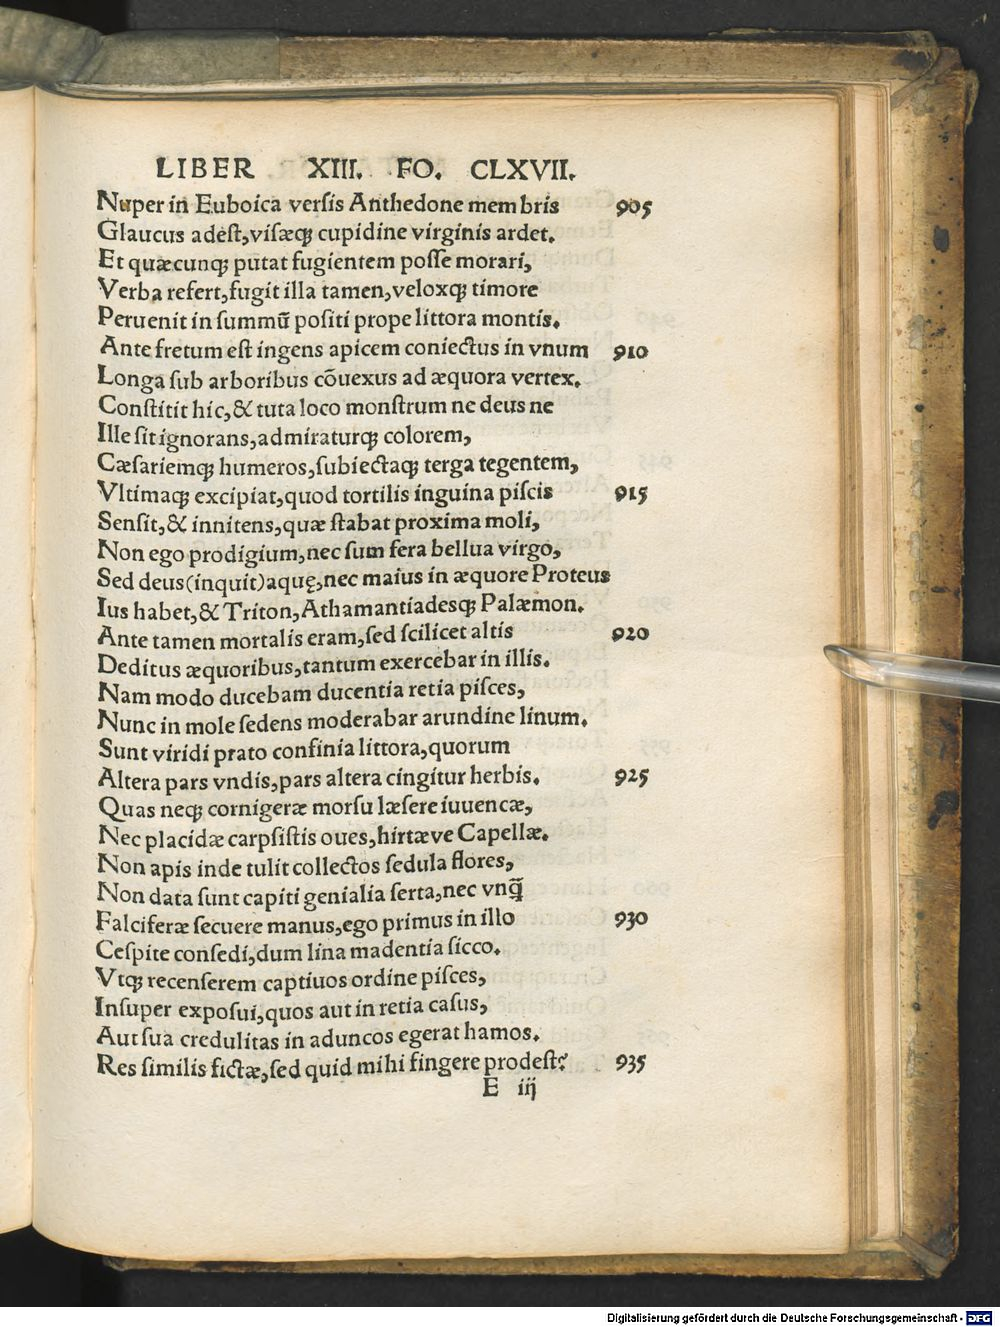 LIBER XIII. FO. CLXVII.
Nuper in Euboica versis Anthedone membris 905
Glaucus adest, visæq; cupidine virginis ardet.
Et quæcunq; putat fugientem posse morari,
Verba refert, fugit illa tamen, veloxq; timore
Peruenit in summū positi prope littora montis.
Ante fretum est ingens apicem coniectus in vnum 910
Longa sub arboribus cōuexus ad æquora vertex.
Constitit hic, & tuta loco monstrum ne deus ne
Ille sit ignorans, admiraturq; colorem,
Cæsariemq; humeros, subiectaq; terga tegentem,
Vltimaq; excipiat, quod tortilis inguina piscis 915
Sensit, & innitens, quæ stabat proxima moli,
Non ego prodigium, nec sum fera bellua virgo,
Sed deus (inquit) aquę, nec maius in æquore Proteus
Ius habet, & Triton, Athamantiadesq; Palæmon.
Ante tamen mortalis eram, sed scilicet altis 920
Deditus æquoribus, tantum exercebar in illis.
Nam modo ducebam ducentia retia pisces,
Nunc in mole sedens moderabar arundine linum.
Sunt viridi prato confinia littora, quorum
Altera pars vndis, pars altera cingitur herbis. 925
Quas neq; cornigeræ morsu læsere iuuencæ,
Nec placidæ carpsistis oues, hirtæve Capellæ.
Non apis inde tulit collectos sedula flores,
Non data sunt capiti genialia serta, nec vnq̃
Falciferæ secuere manus, ego primus in illo 930
Cespite consedi, dum lina madentia sicco.
Vtq; recenserem captiuos ordine pisces,
Insuper exposui, quos aut in retia casus,
Aut sua credulitas in aduncos egerat hamos.
Res similis fictæ, sed quid mihi fingere prodest? 935
E iij
Digitalisierung gefördert durch die Deutsche Forschungsgemeinschaft - DFG